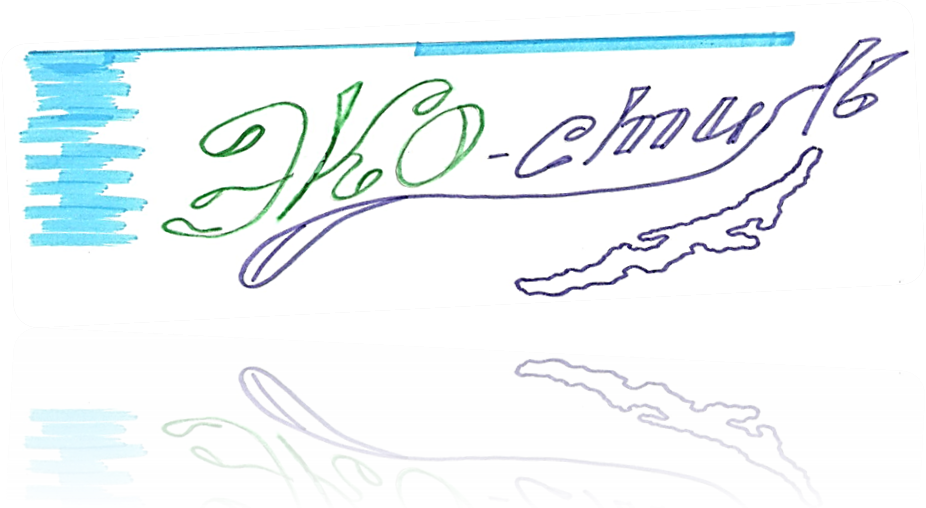 Эко-стиль